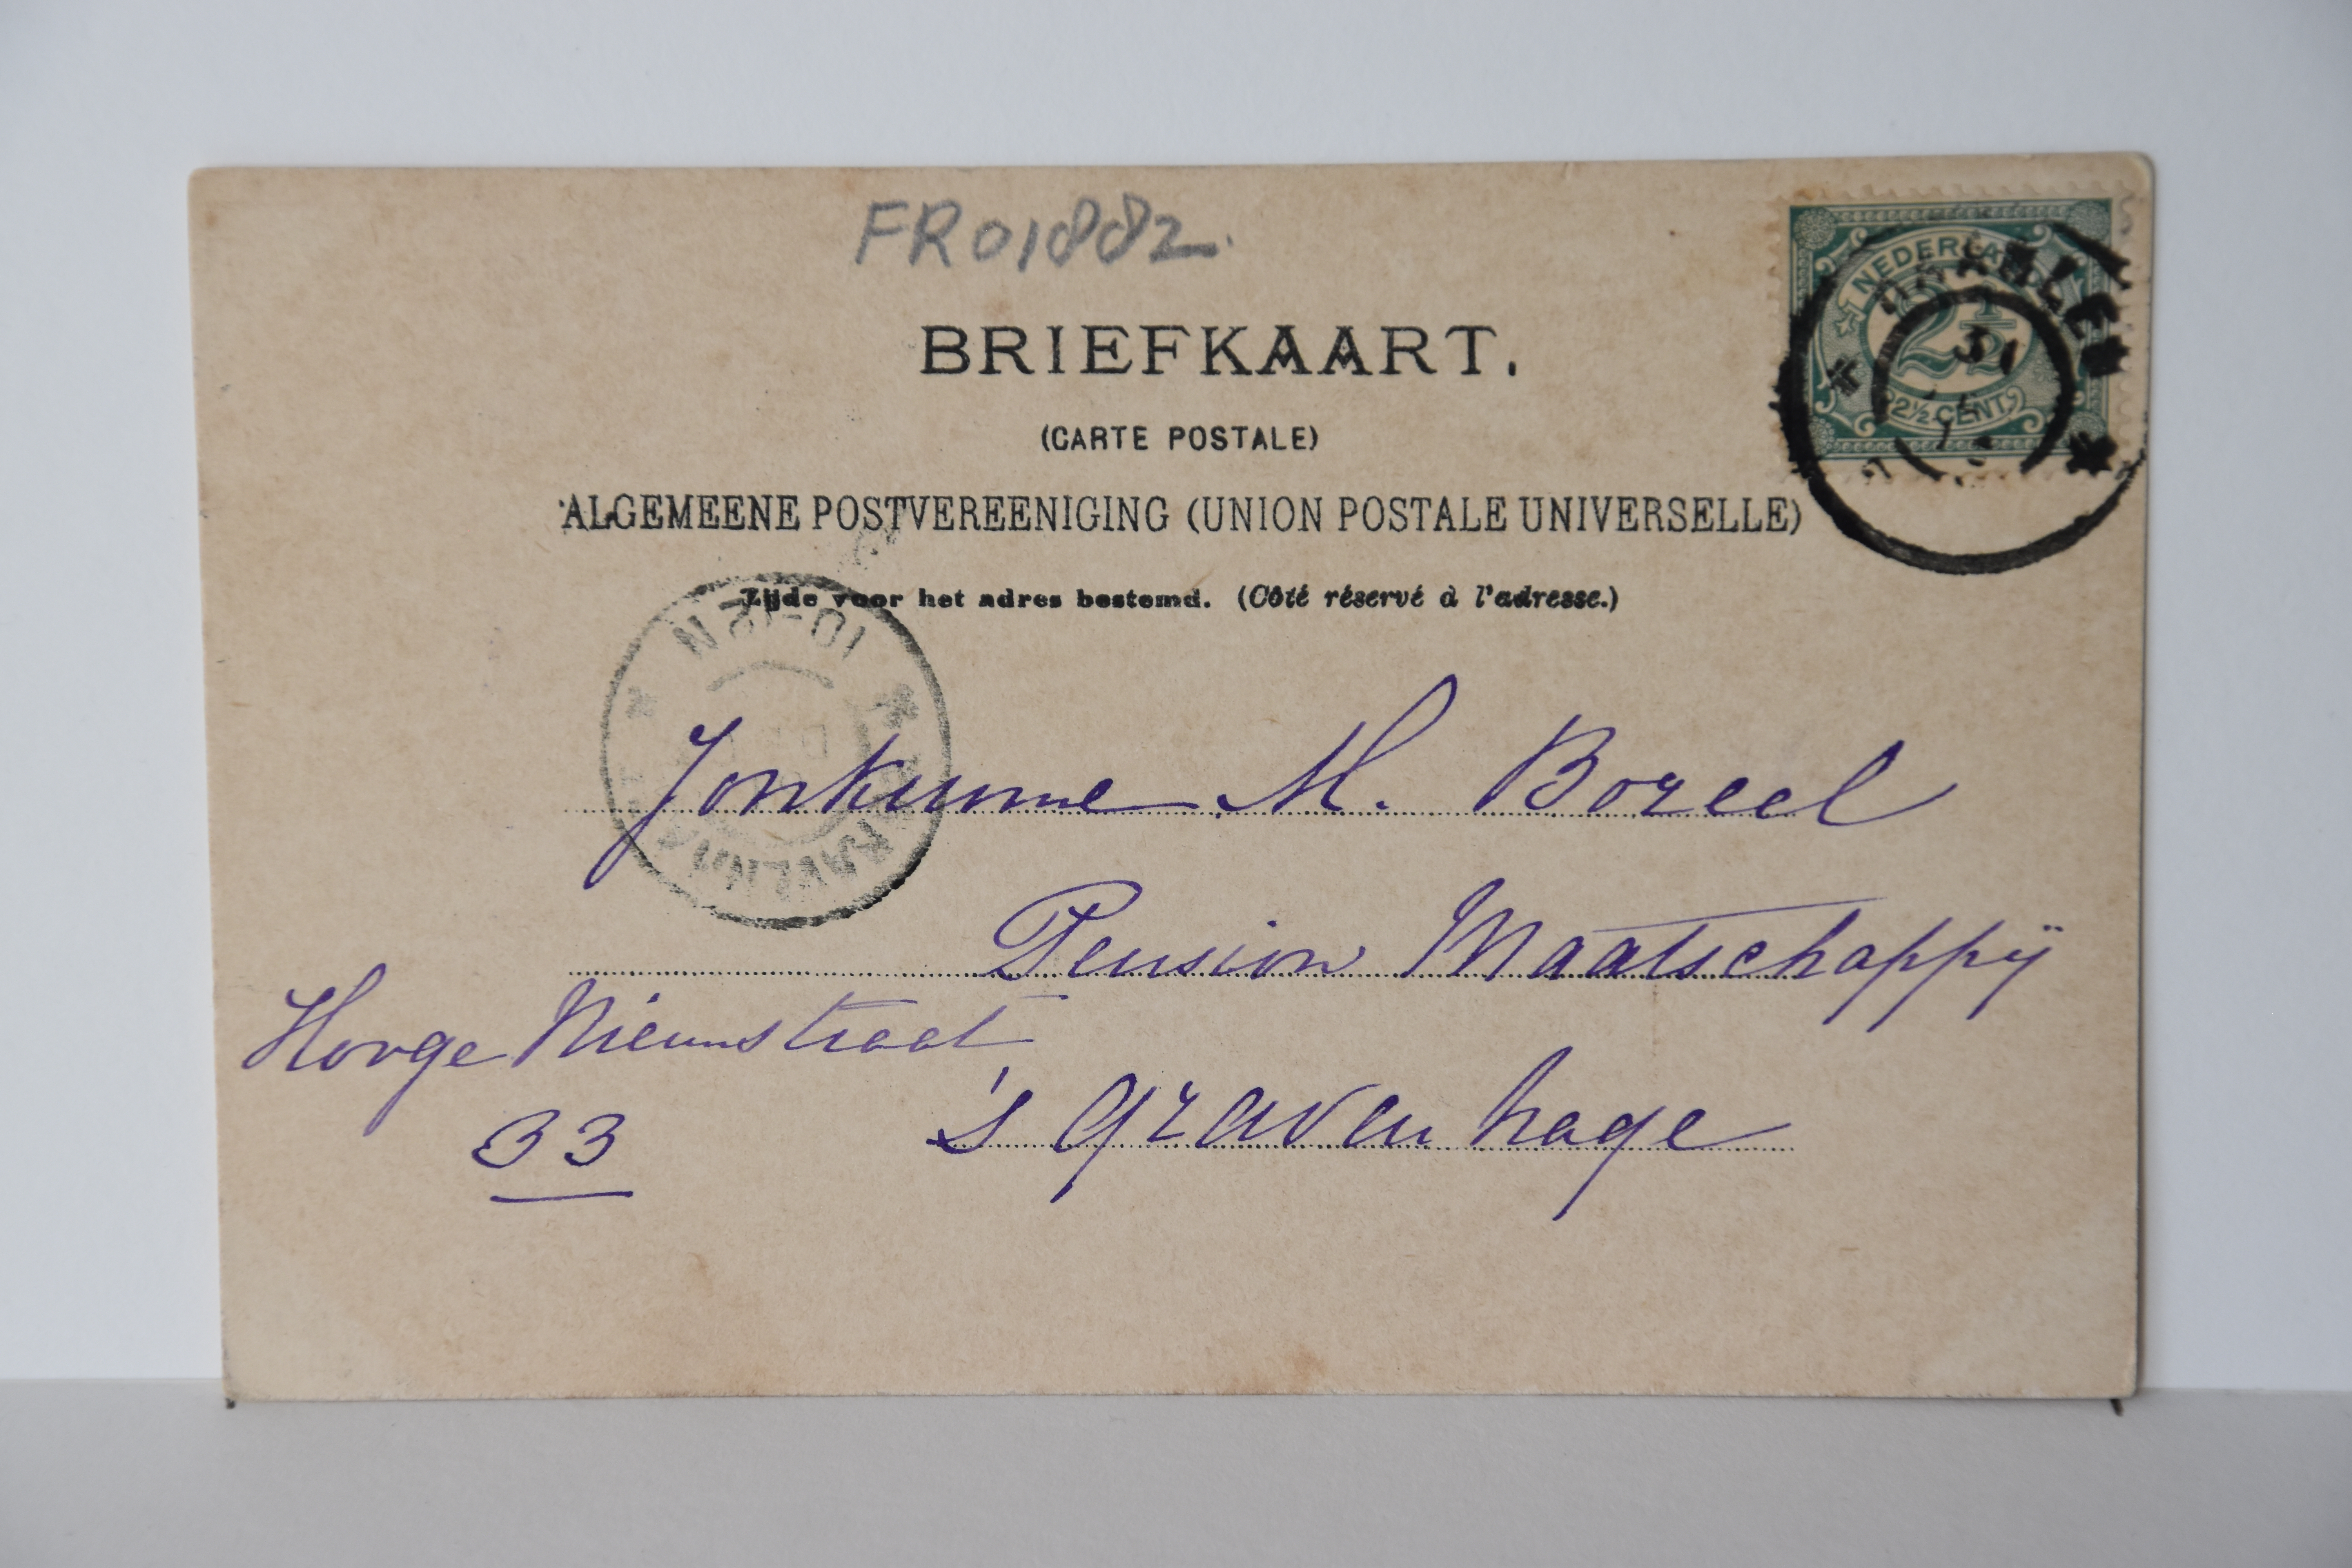 FR01882.
BRIEFKAART.
(CARTE POSTALE)
ALGEMEENE POSTVEREENIGING (UNION POSTALE UNIVERSELLE)
Zijde voor het adres bestemd. (Côté réservé à l'adresse.)
NEDERLAND
2½
2½ CENT
10-12N
Jonkvrouwe M. Boreel
Pension Maatschappij
Hooge Nieuwstraat
33
's Gravenhage